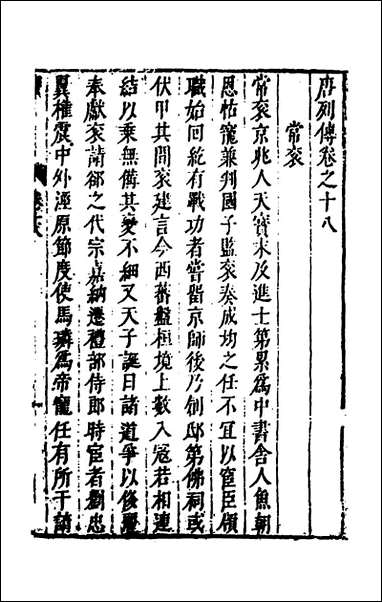 唐列傳卷之十八
常袞
常袞京兆人天寶末及進士第累爲中書舍人魚朝
恩怙寵兼判國子監袞奏成均之任不宜以宦臣領
職始回紇有戰功者嘗留京師後乃創邸第佛祠或
伏甲其間袞建言今西蕃盤桓境上數入寇若相連
結以乘無備其變不細又天子誕日諸道爭以侈麗
奉獻袞請卻之代宗嘉納遷禮部侍郎時宦者劉忠
翼權震中外涇原節度使馬璘爲帝寵任有所干請